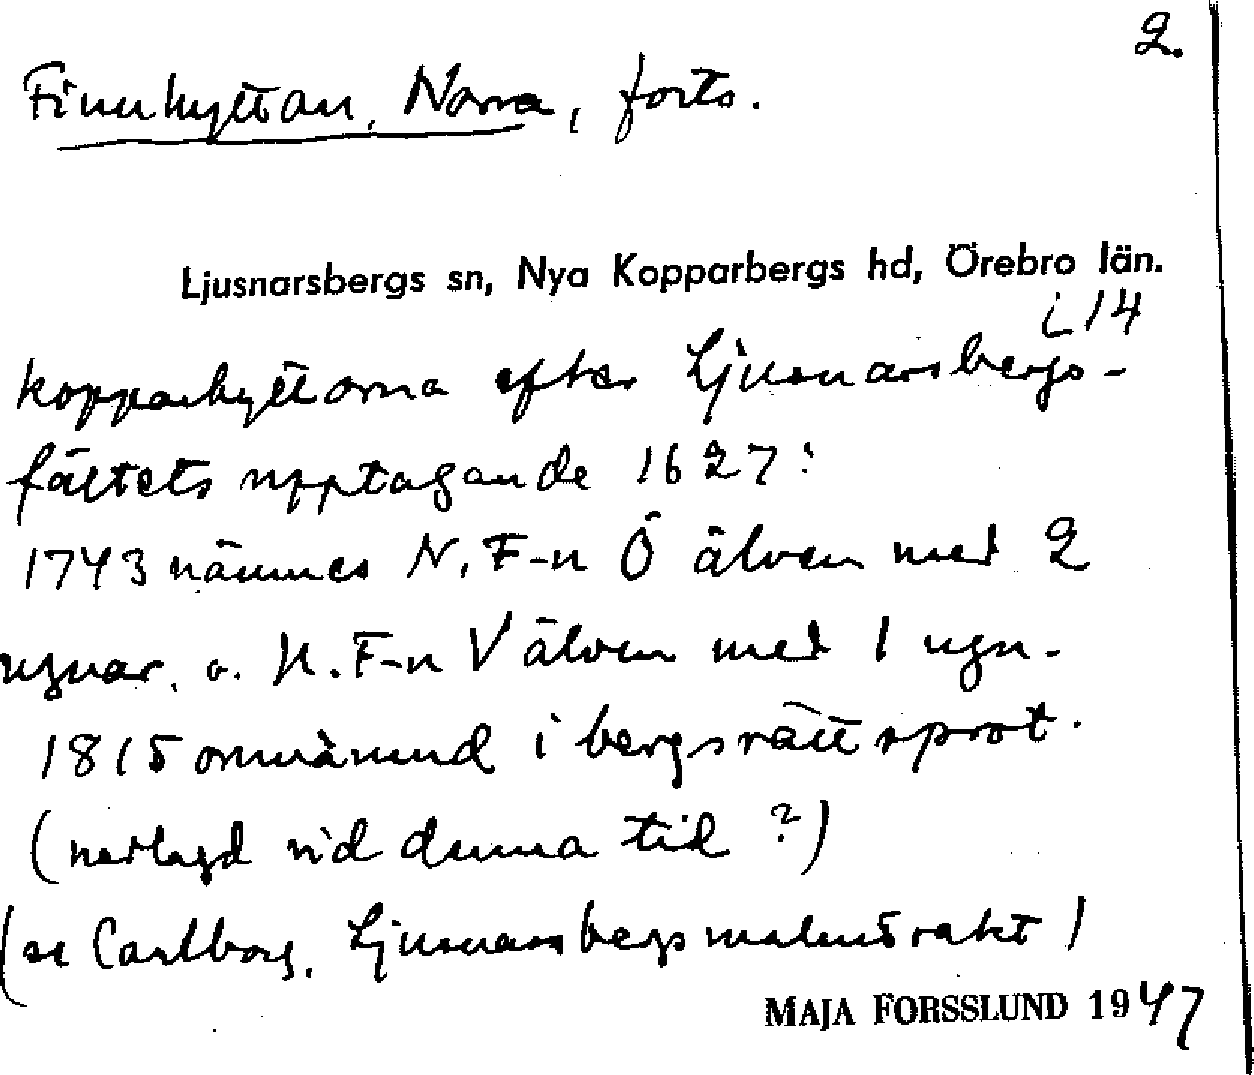 2.
Finnhyttan, Norra, forts.
Ljusnarsbergs sn, Nya Kopparbergs hd, Örebro län.
i 14
kopparhyttorna efter Ljusnarsbergs-
fältets upptagande 1627:
1743 nämnes N. F-n Ö älven med 2
ugnar. o. N. F-n V älven med 1 ugn.
1815 omnämnd i bergsrättsprot.
(nerlagd vid denna tid ?)
(se Carlborg, Ljusnarsbergs malmtrakt)
MAJA FORSSLUND 1947